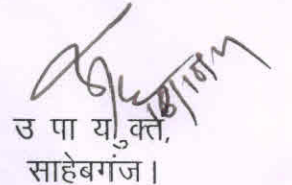 उ पा यु क्त,
साहेबगंज।